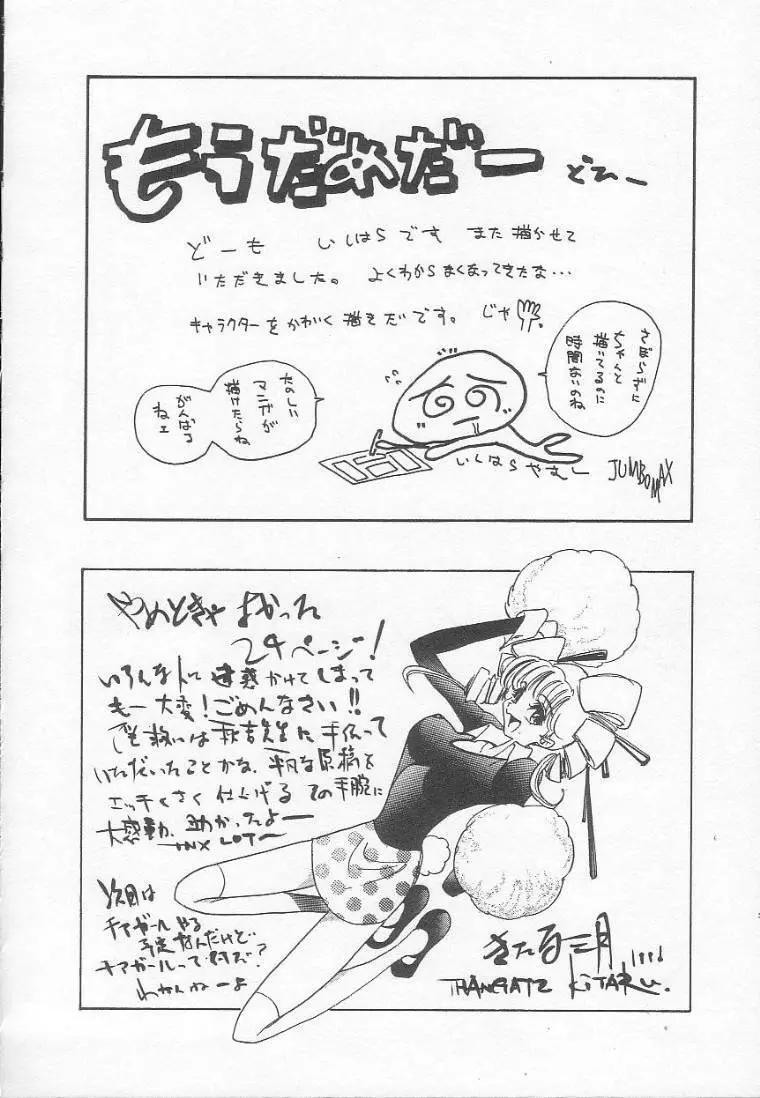 もうだめだー どひー
どーも いしはらです また描かせて
いただきました。 よくわからなくなってきたな…
キャラクターをかわいく描きたいです。 じゃ
さぼらずに
ちゃんと
描いてるのに
時間ないのね
たのしい
マンガが
描けたらね
がんばる
ねェ
いしはらやすしー
JUMBOMAX
やめときゃ よかった
24ページ!
いろんな人に 迷惑かけてしまって
もー 大変! ごめんなさい!!
でも救いは 秋吉先生に手伝って
いただいたことかな、平凡な原稿を
エッチくさく 仕上げる その手腕に
大感動、助かったよー
TNX LOTー
次回は
チアガールやる
予定なんだけど…
チアガールって何だ?
わかんねーよ
きたる三月
1996
KITARU.